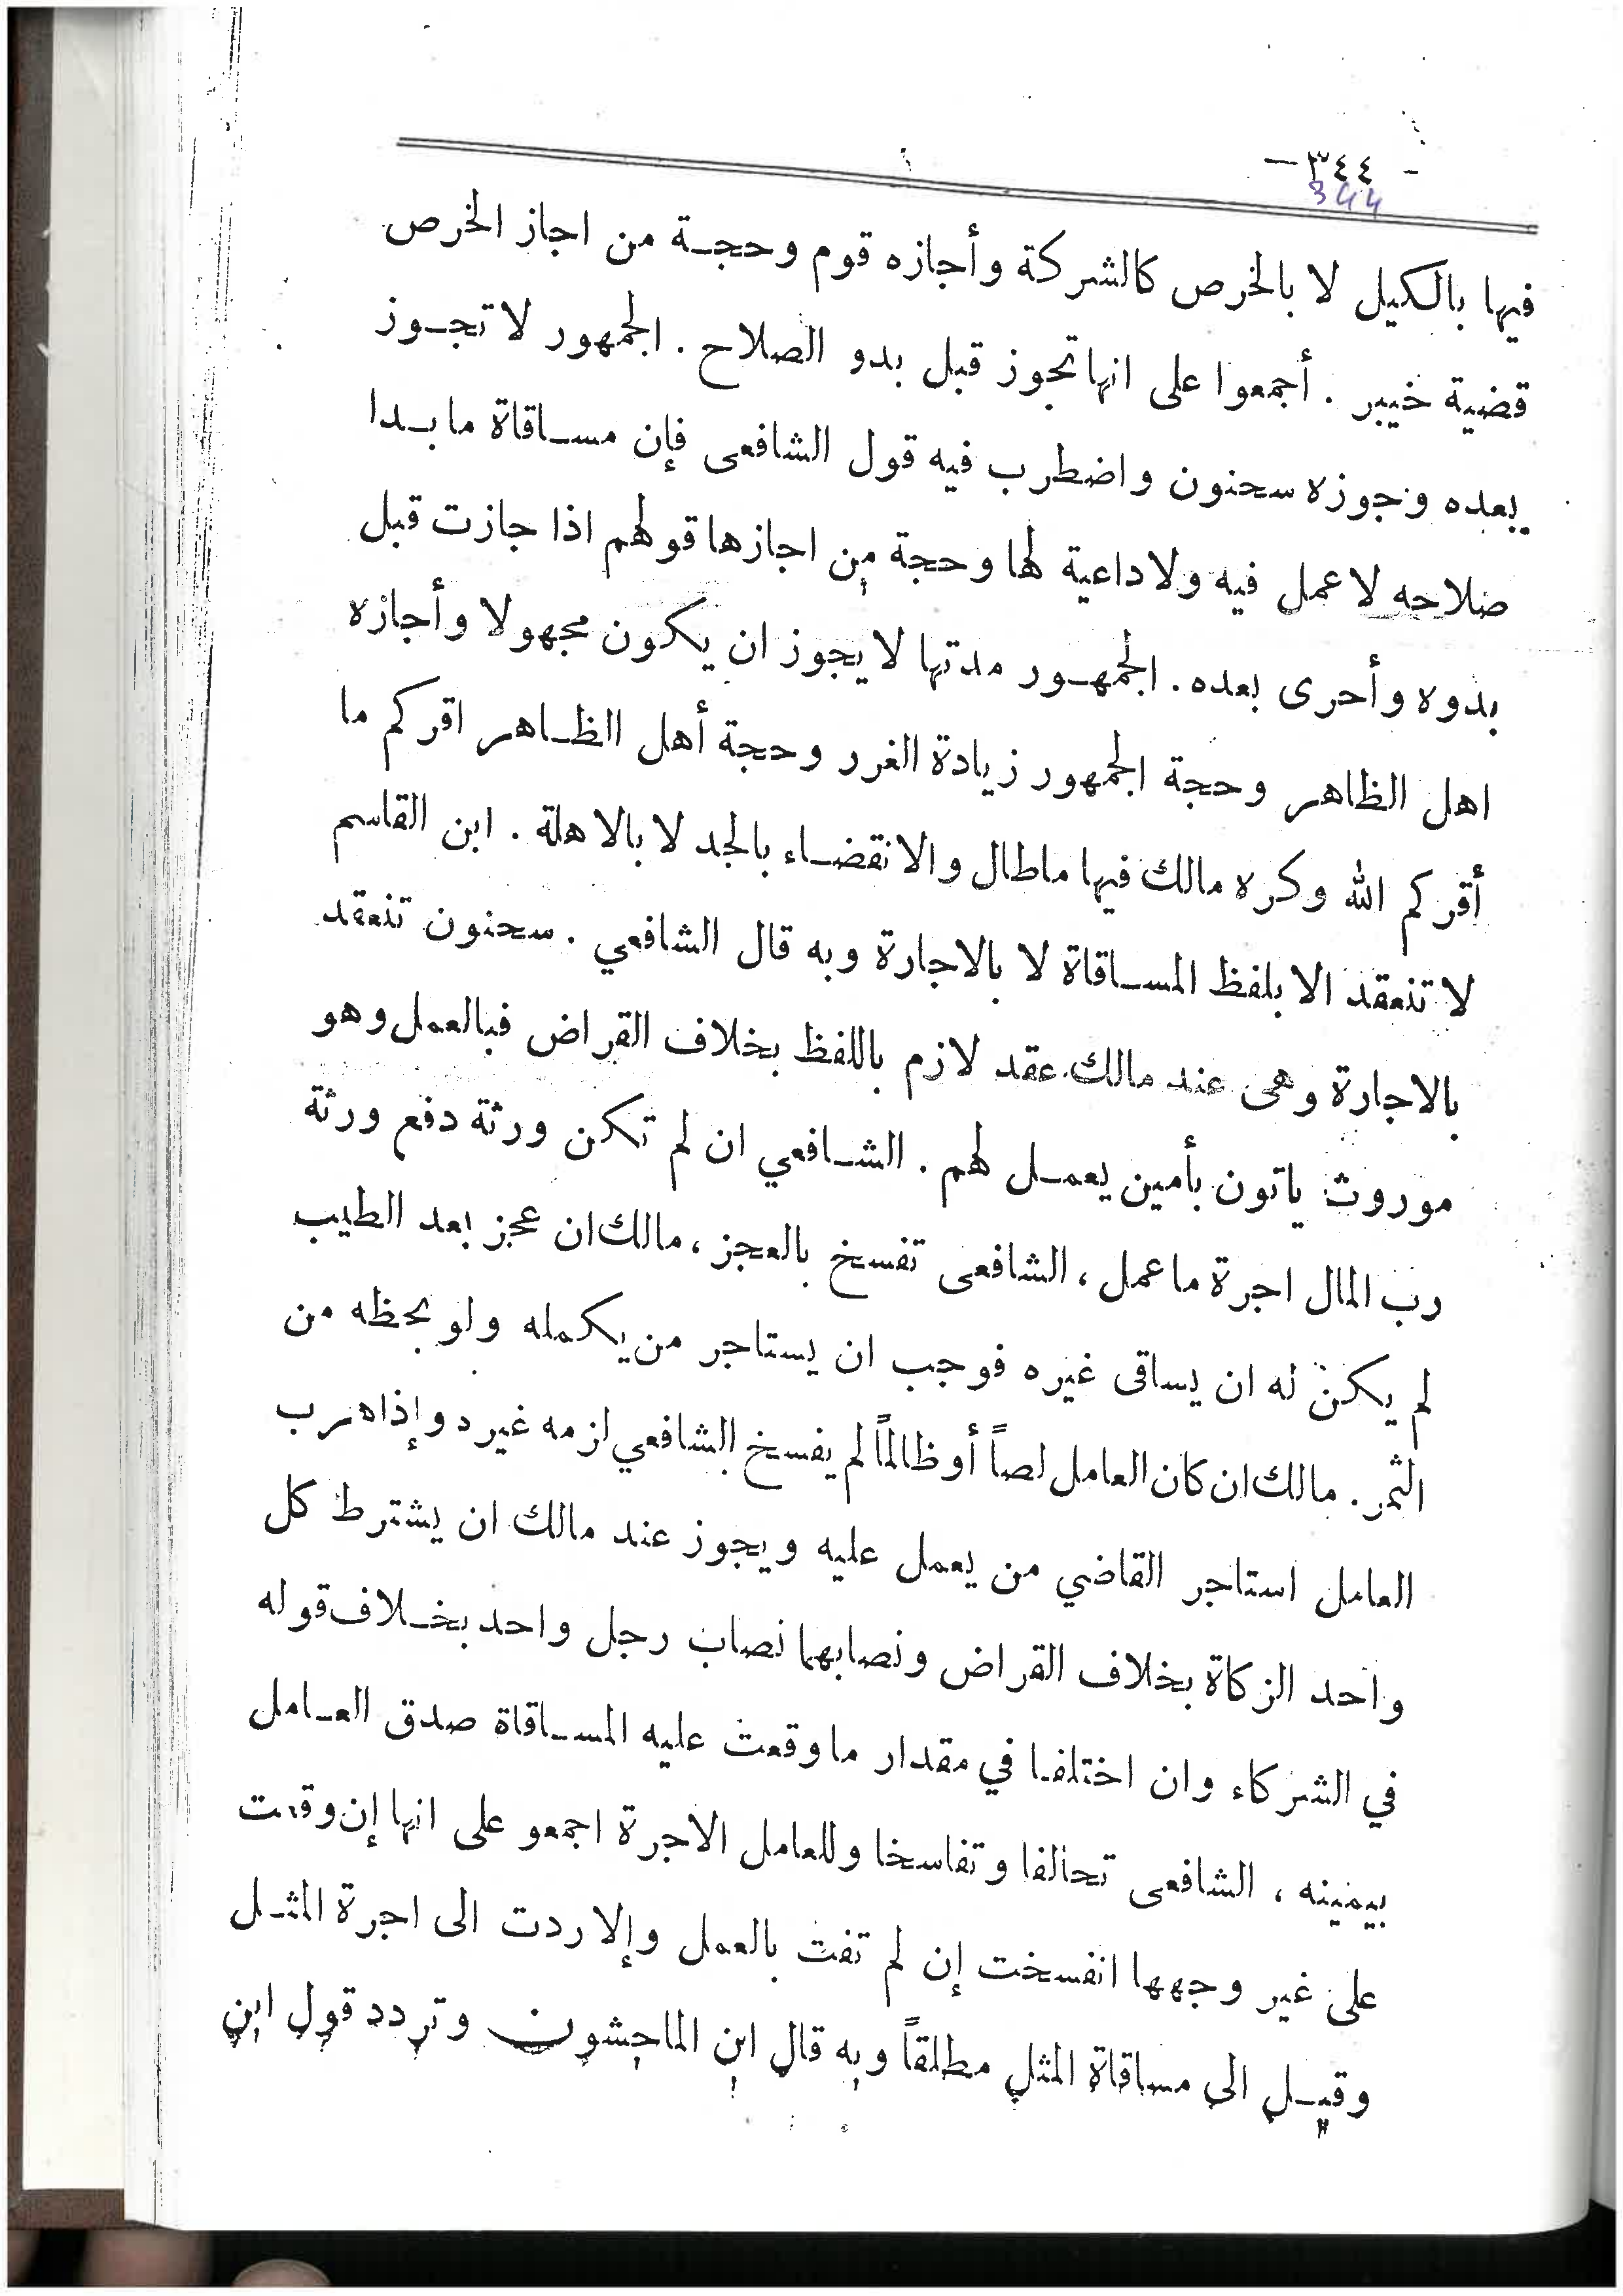 - ٣٤٤ -
344
فيها بالكيل لا بالخرص كالشركة وأجازه قوم وحجة من اجاز الخرص
قضية خيبر . أجمعوا على انها تجوز قبل بدو الصلاح . الجمهور لا تجوز
بعده وجوزه سحنون واضطرب فيه قول الشافعى فإن مساقاة ما بدا
صلاحه لا عمل فيه ولا داعية لها وحجة من اجازها قولهم اذا جازت قبل
بدوه وأحرى بعده . الجمهور مدتها لا يجوز ان يكون مجهولا وأجازه
اهل الظاهر وحجة الجمهور زيادة الغرر وحجة أهل الظاهر اقركم ما
أقركم الله وكره مالك فيها ماطال والانقضاء بالجد لا بالاهلة . ابن القاسم
لا تنعقد الا بلفظ المساقاة لا بالاجارة وبه قال الشافعي . سحنون تنعقد
بالاجارة وهى عند مالك عقد لازم باللفظ بخلاف القراض فبالعمل وهو
موروث ياتون بأمين يعمل لهم . الشافعي ان لم تكن ورثة دفع ورثة
رب المال اجرة ما عمل ، الشافعى تفسخ بالعجز ، مالك ان عجز بعد الطيب
لم يكن له ان يساقى غيره فوجب ان يستاجر من يكمله ولو بحظه من
الثمر . مالك ان كان العامل لصاً أو ظالماً لم يفسخ الشافعي لزمه غيره وإذا هرب
العامل استاجر القاضي من يعمل عليه ويجوز عند مالك ان يشترط كل
واحد الزكاة بخلاف القراض ونصابهما نصاب رجل واحد بخلاف قوله
في الشركاء وان اختلفا في مقدار ما وقعت عليه المساقاة صدق العامل
بيمينه ، الشافعى تحالفا وتفاسخا وللعامل الاجرة اجمعو على انها إن وقعت
على غير وجهها انفسخت إن لم تفت بالعمل وإلا ردت الى اجرة المثل
وقيل الى مساقاة المثل مطلقاً وبه قال ابن الماجشون وتردد قول ابن